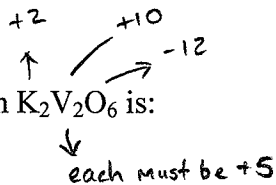 +2 +10
-12
n K₂V₂O₆ is:
each must be +5